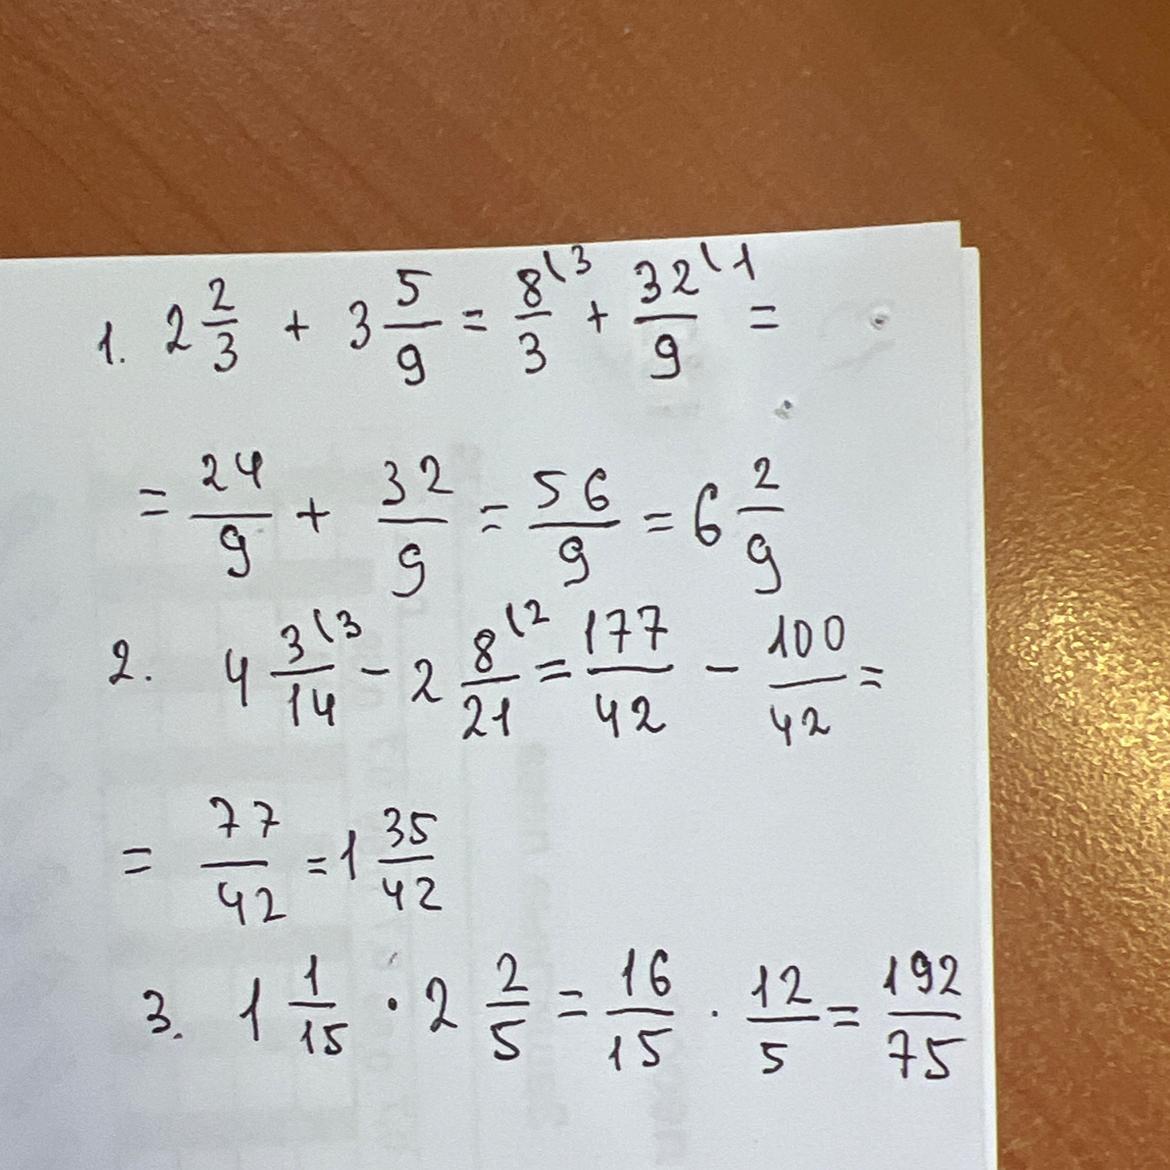 1. 2 2/3 + 3 5/9 = 8/3 (3 + 32/9 (1 =
= 24/9 + 32/9 = 56/9 = 6 2/9
2. 4 3/14 (3 - 2 8/21 (2 = 177/42 - 100/42 =
= 77/42 = 1 35/42
3. 1 1/15 · 2 2/5 = 16/15 · 12/5 = 192/75